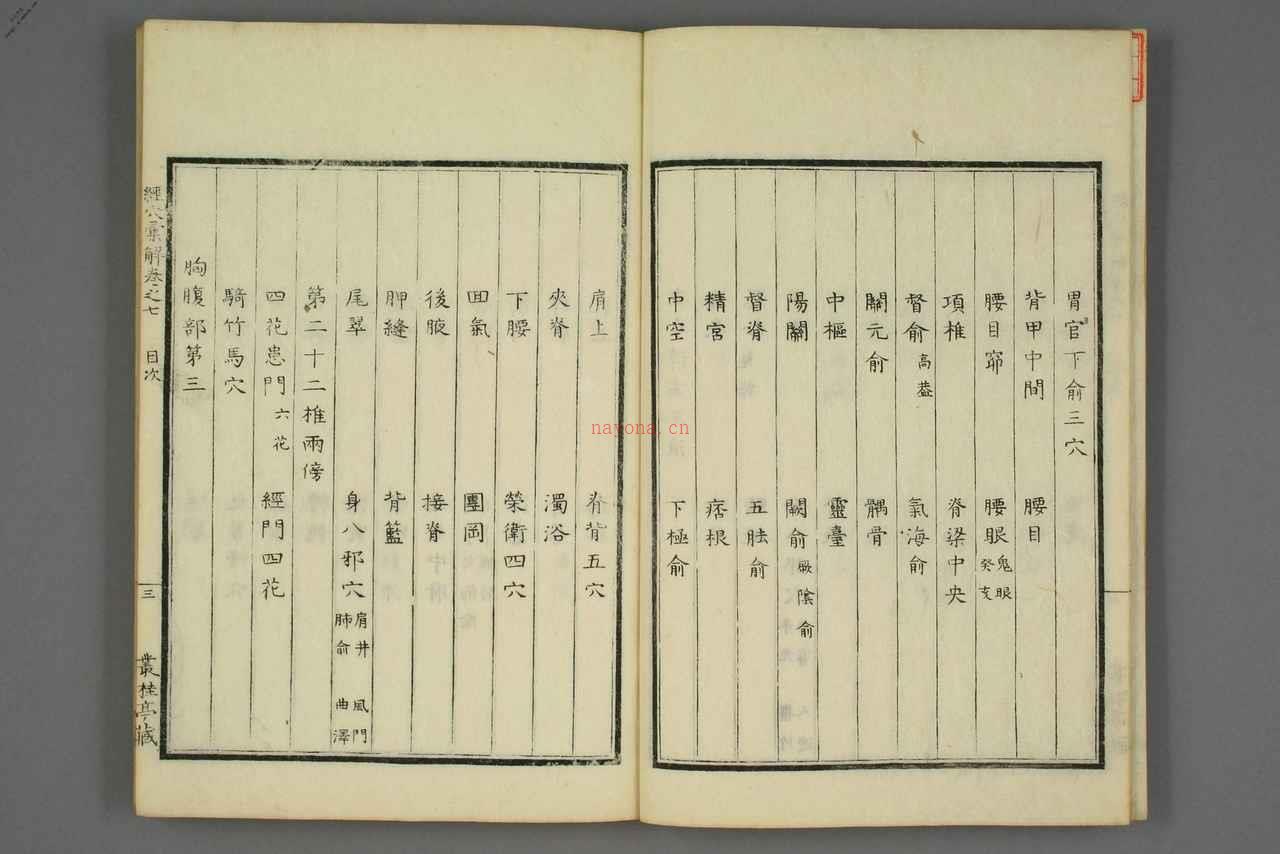 胃官下俞三穴
背甲中間 腰目
腰目窌 腰眼 鬼眼 癸亥
項椎 脊梁中央
督俞 高葢 氣海俞
關元俞 髃骨
中樞 靈臺
陽關 闕俞 厥陰俞
督脊 五胠俞
精宮 痞根
中空 下極俞
肩上 脊背五穴
夾脊 濁浴
下腰 榮衛四穴
回氣 團岡
後腋 接脊
胛縫 背籃
尾翠 身八邪穴 肩井 風門 肺俞 曲澤
第二十二椎兩傍
四花患門 六花 經門四花
騎竹馬穴
胸腹部第三
經穴彙解卷之七 目次 三 叢桂亭藏
nayona.cn